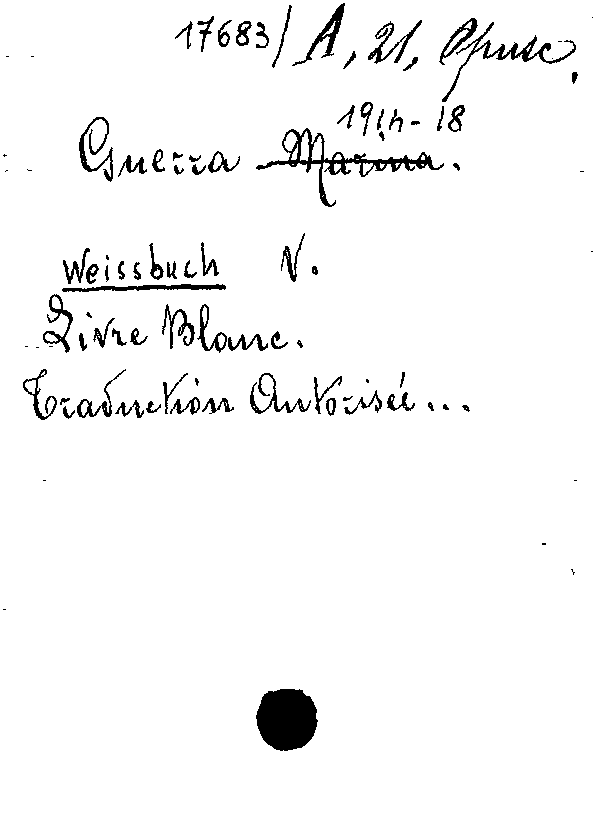 17683/ A, 21, Opusc,
1914-18
Guerra Marina.
Weissbuch V.
Livre Blanc.
Traduction Autorisée...